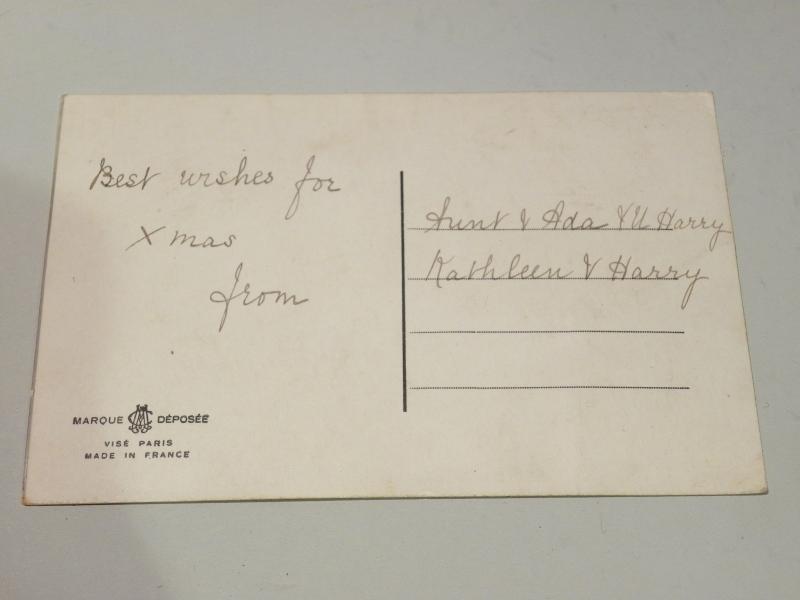 Best wishes for
X mas
from
Aunt & Ada & U Harry
Kathleen & Harry
MARQUE DÉPOSÉE
VISÉ PARIS
MADE IN FRANCE